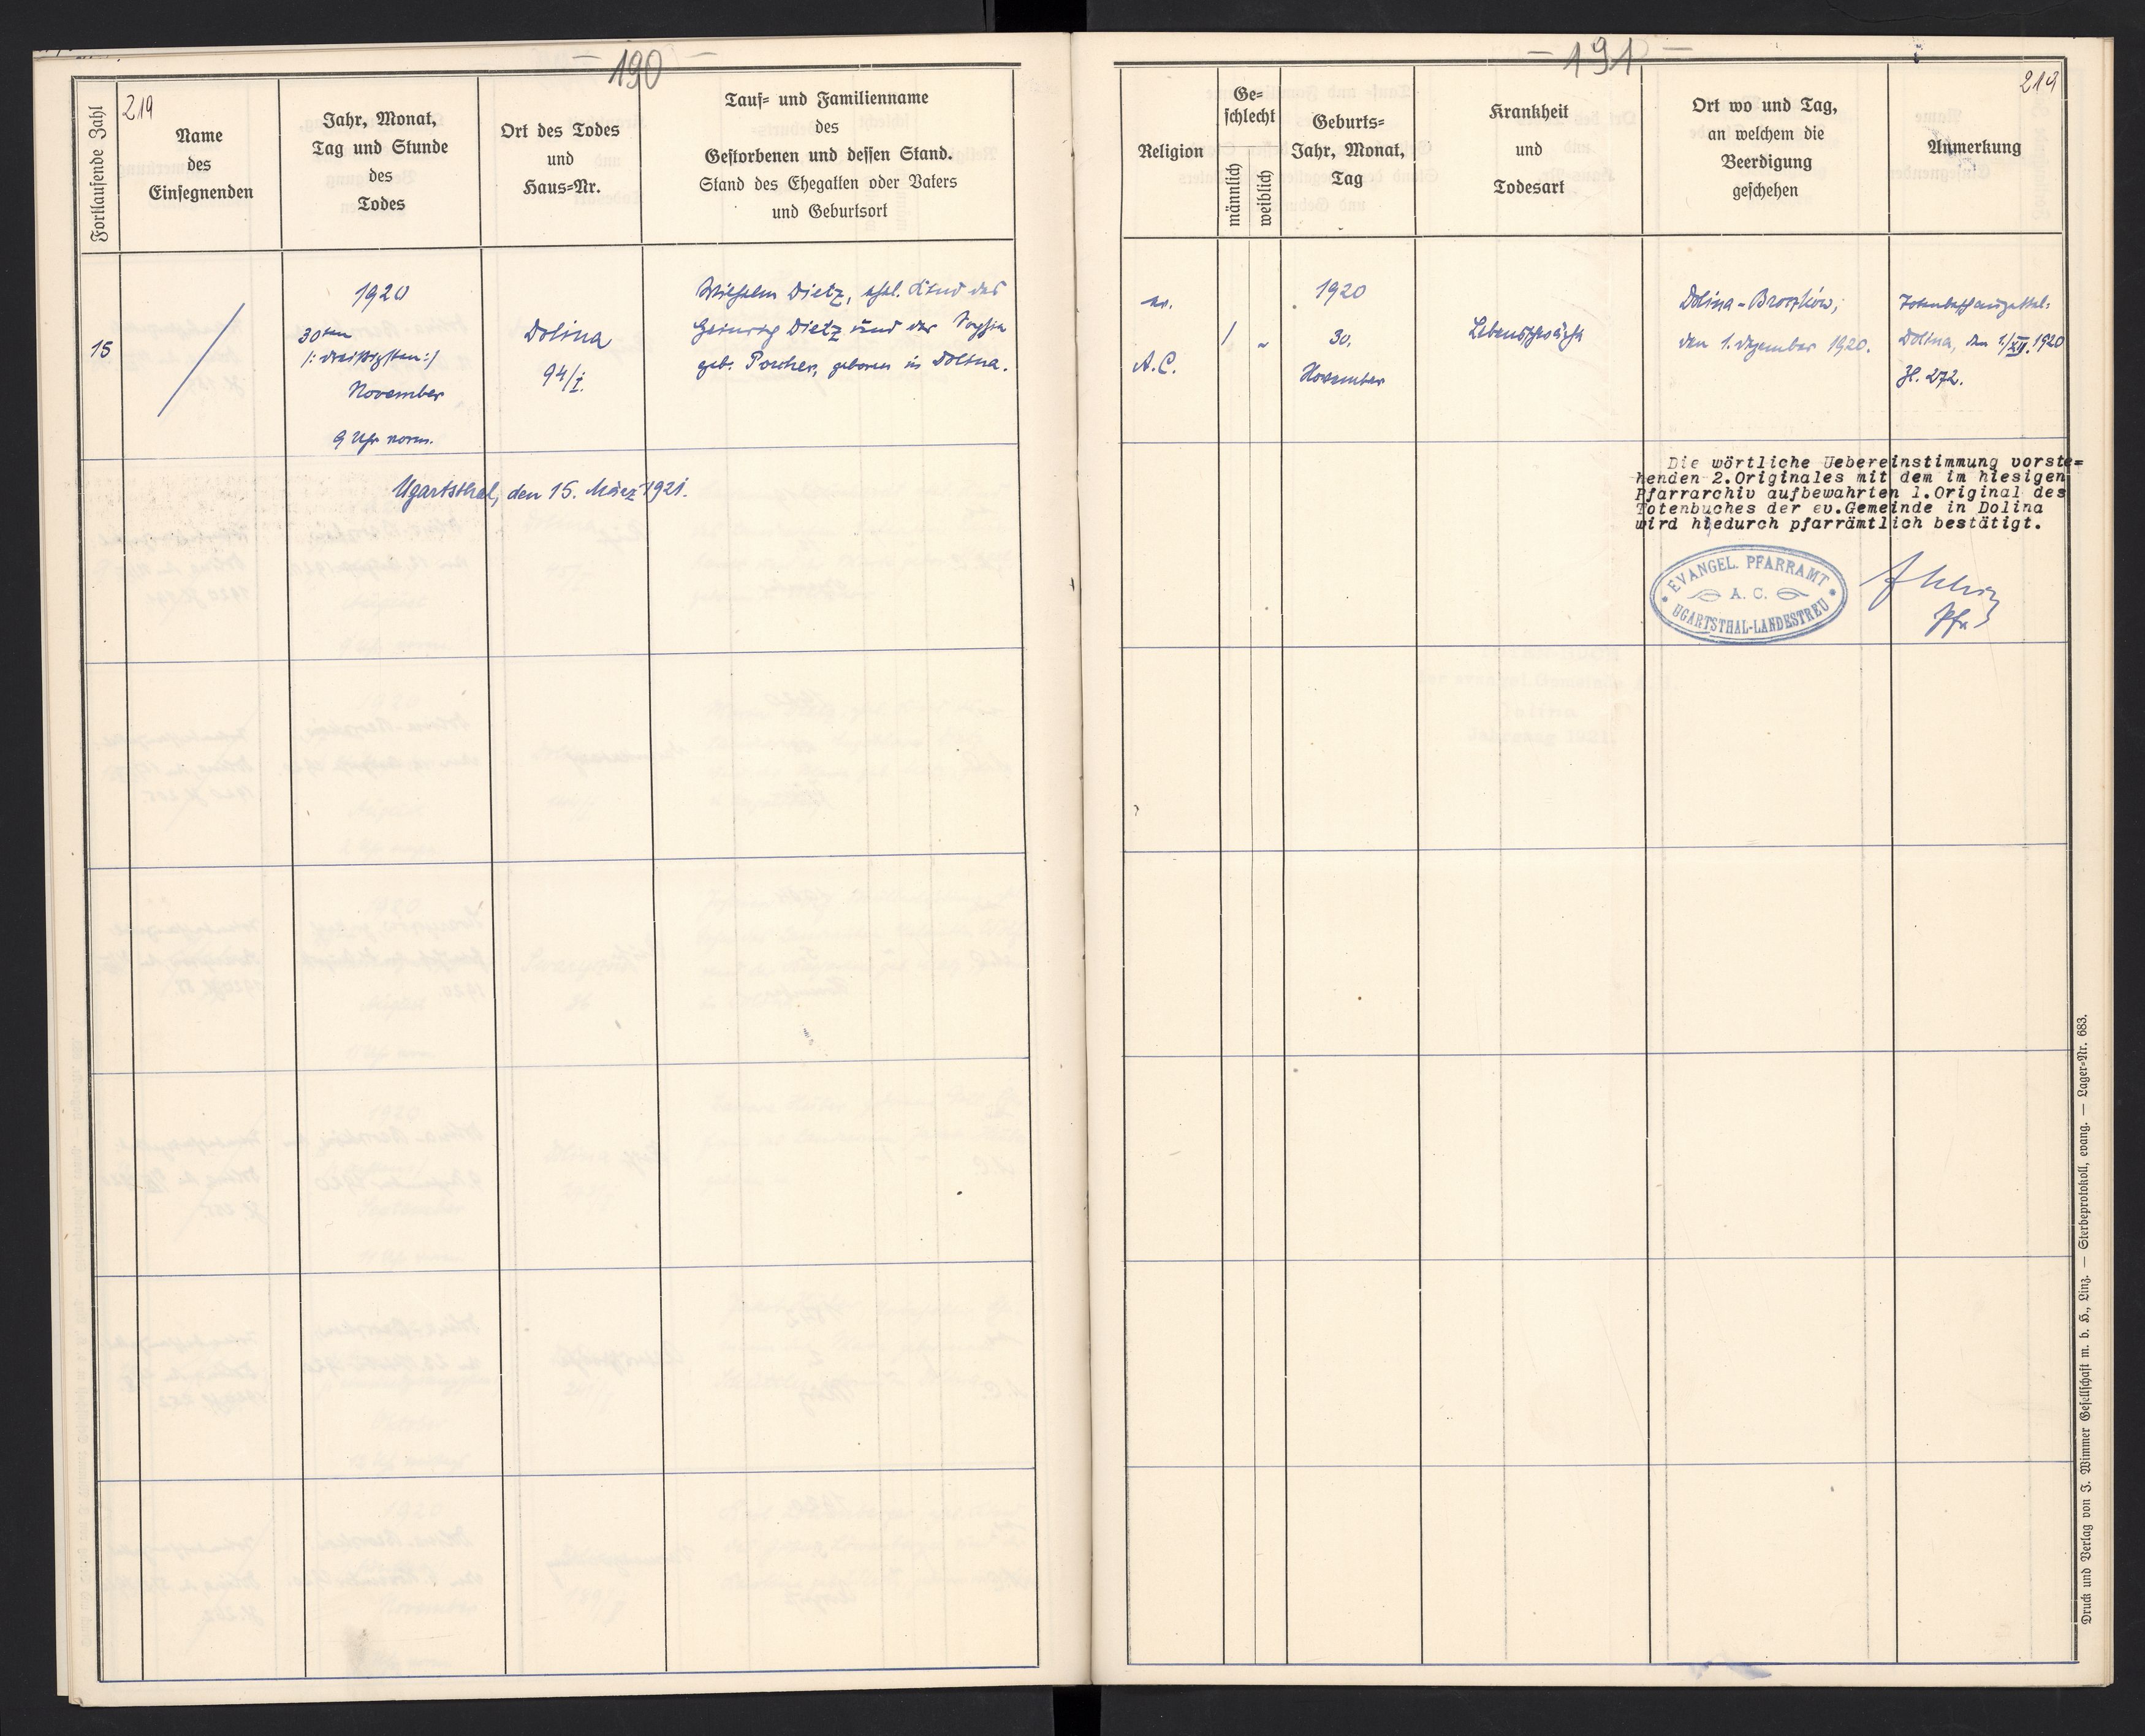 – 190 –
219
Fortlaufende Zahl
Name
des
Einsegnenden
Jahr, Monat,
Tag und Stunde
des
Todes
Ort des Todes
und
Haus-Nr.
Tauf- und Familienname
des
Gestorbenen und dessen Stand.
Stand des Ehegatten oder Vaters
und Geburtsort
15
1920
30ten
/: dreißigsten :/
November
9 Uhr vorm.
Dolina
94/I.
Wilhelm Dietz, ehel. Kind des
Heinrich Dietz und der Sophia
geb. Porcher, geboren in Dolina.
Ugartsthal, den 15. März 1921.
– 191 –
219
Religion
Ge-
schlecht
männlich
weiblich
Geburts-
Jahr, Monat,
Tag
Krankheit
und
Todesart
Ort wo und Tag,
an welchem die
Beerdigung
geschehen
Anmerkung
ev.
A.C.
1
"
1920
30.
November
Lebensschwäche
Dolina-Broczków,
den 1. Dezember 1920.
Totenbeschauzettel:
Dolina, den 1./XII. 1920
Zl. 272.
Die wörtliche Uebereinstimmung vorste=
henden 2.Originales mit dem im hiesigen
Pfarrarchiv aufbewahrten 1.Original des
Totenbuches der ev.Gemeinde in Dolina
wird hiedurch pfarrämtlich bestätigt.
EVANGEL. PFARRAMT
A. C.
UGARTSTHAL-LANDESTREU
Pfr
Druck und Verlag von J. Wimmer Gesellschaft m. b. H., Linz. — Sterbeprotokoll, evang. — Lager-Nr. 683.